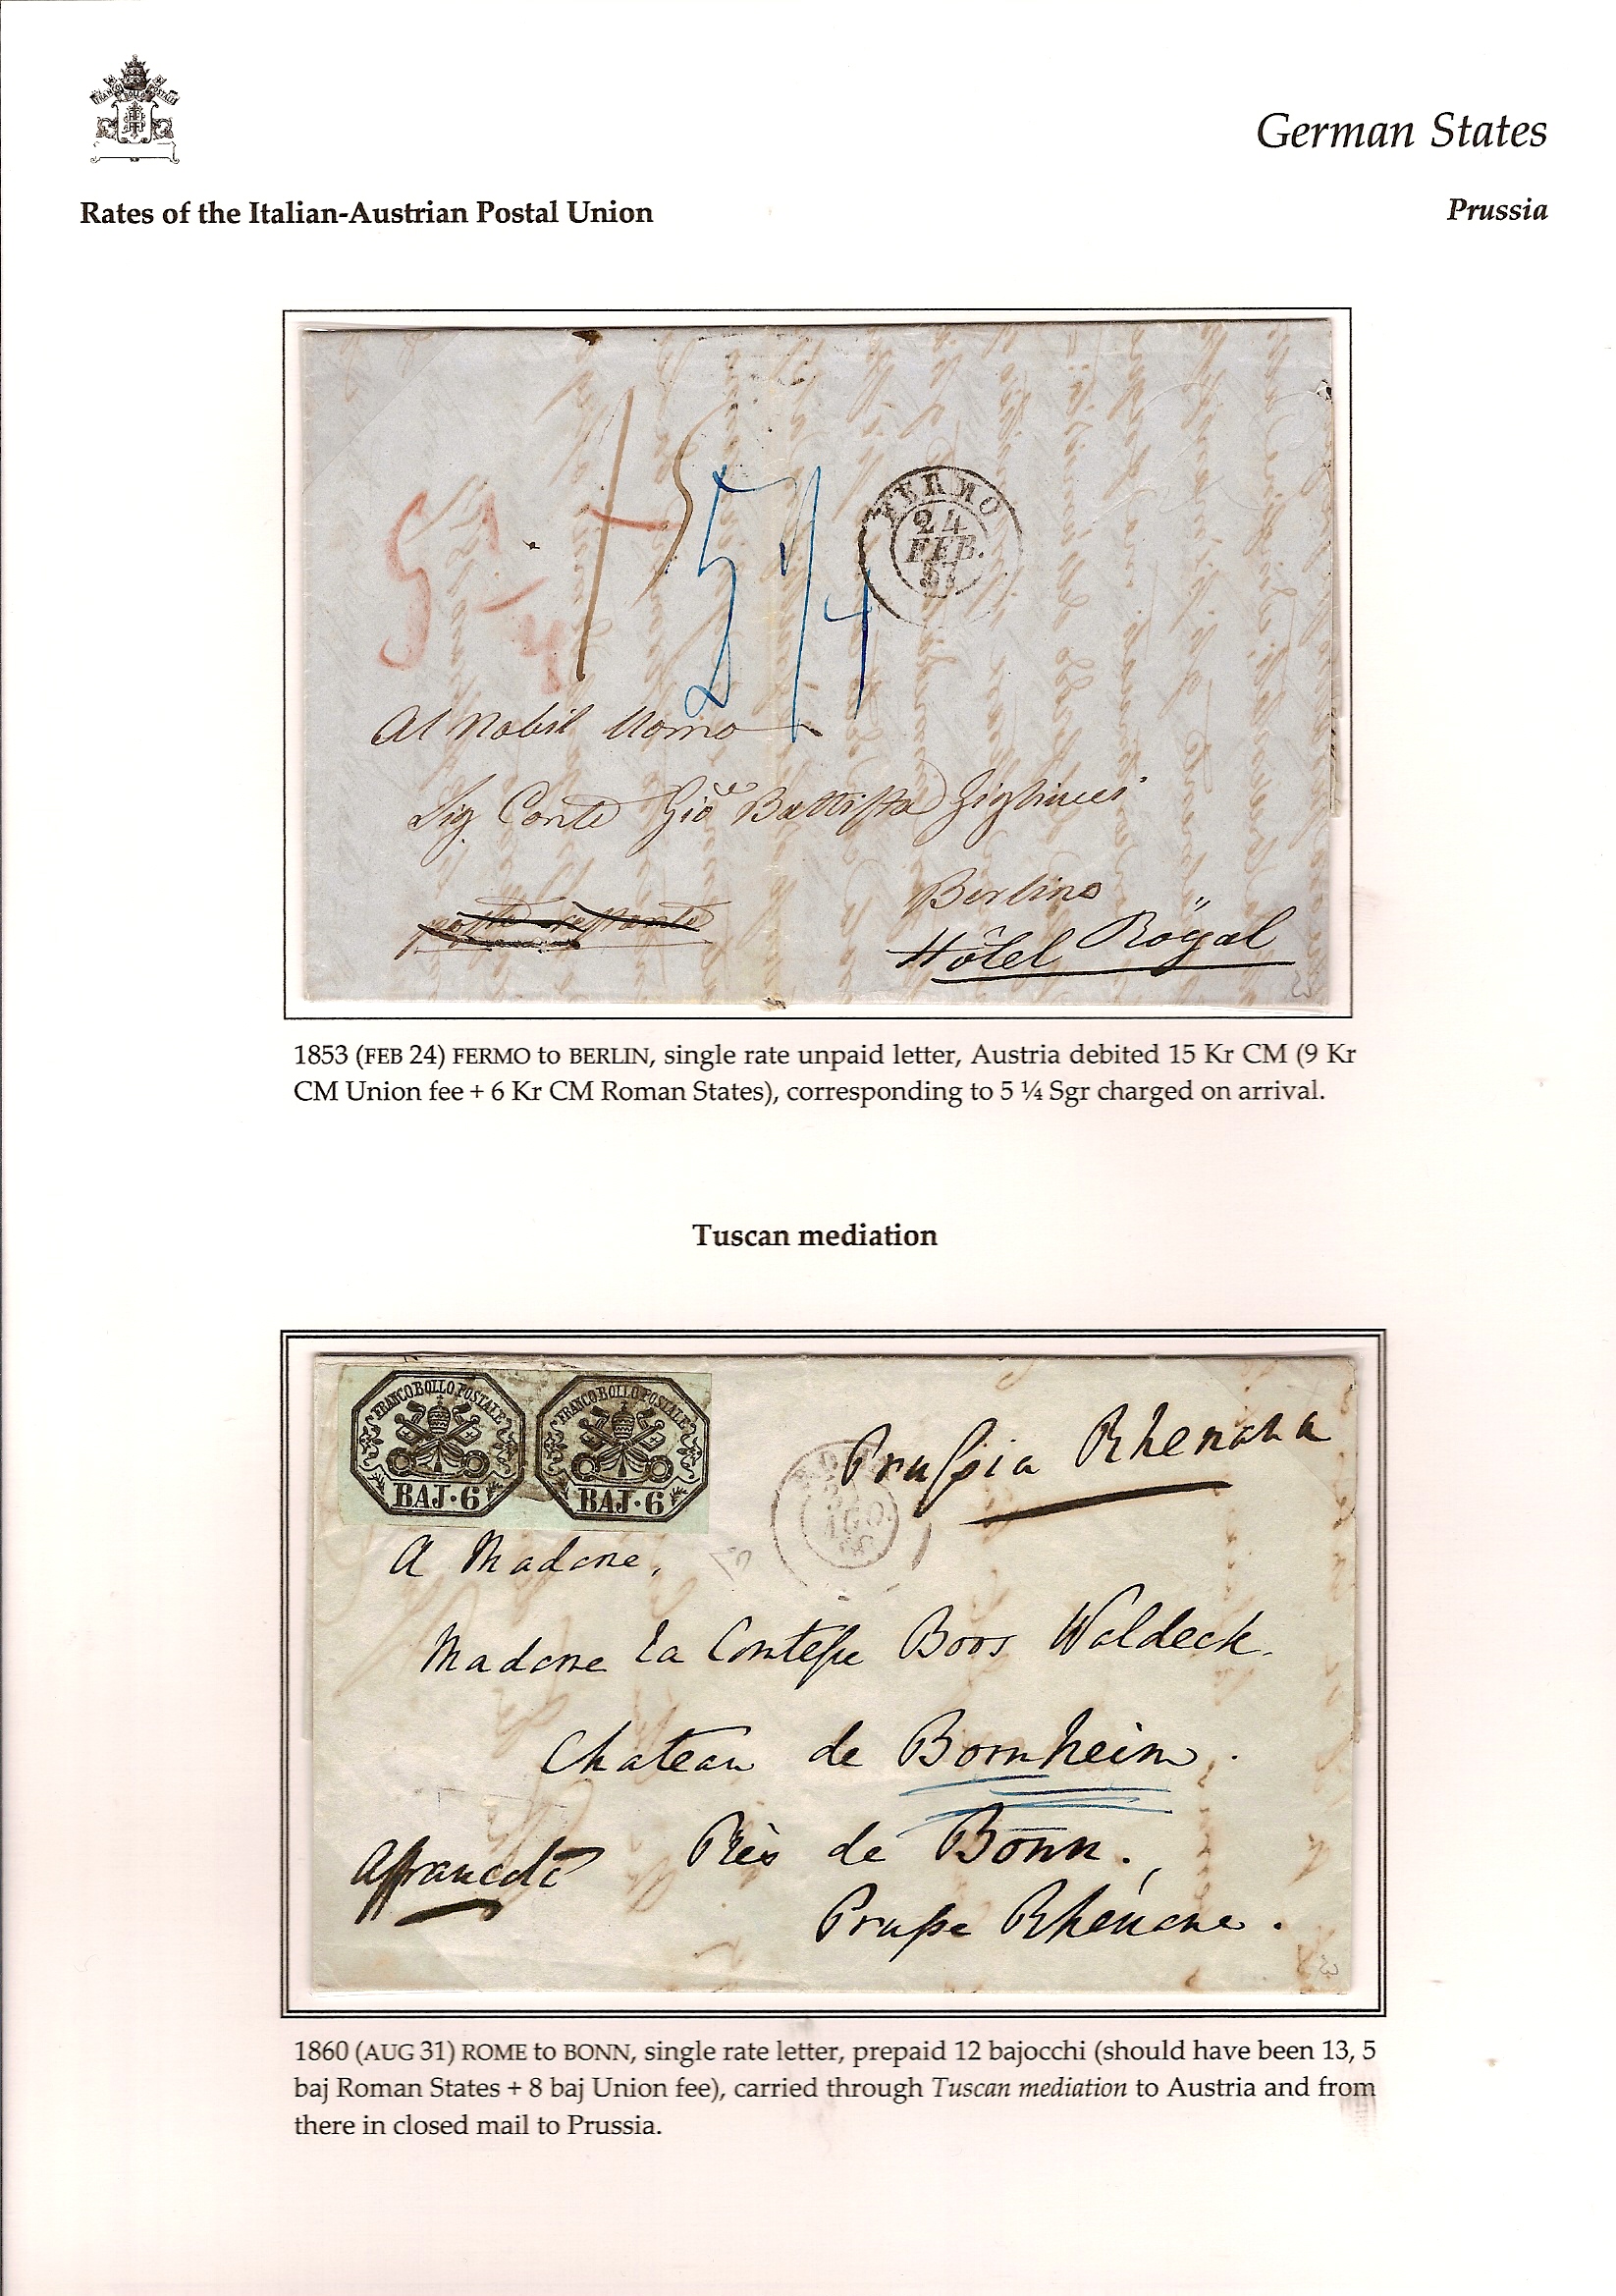 FRANCO BOLLO POSTALE
German States
Rates of the Italian-Austrian Postal Union
Prussia
15
5 1/4
5 1/4
FERMO
24
FEB.
53
Al Nobil Uomo
Sig Conte Gio Battista Gigliucci
poste restante
Berlino
Hôtel Röyal
1853 (FEB 24) FERMO to BERLIN, single rate unpaid letter, Austria debited 15 Kr CM (9 Kr
CM Union fee + 6 Kr CM Roman States), corresponding to 5 ¼ Sgr charged on arrival.
Tuscan mediation
FRANCO BOLLO POSTALE
BAJ·6
FRANCO BOLLO POSTALE
BAJ·6
Prussia Rhenana
ROMA
31
AGO.
60
A Madame,
Madame la Contesse Boos Waldeck.
Chateau de Bornheim.
Près de Bonn.,
affrancata
Prusse Rhénane.
1860 (AUG 31) ROME to BONN, single rate letter, prepaid 12 bajocchi (should have been 13, 5
baj Roman States + 8 baj Union fee), carried through Tuscan mediation to Austria and from
there in closed mail to Prussia.